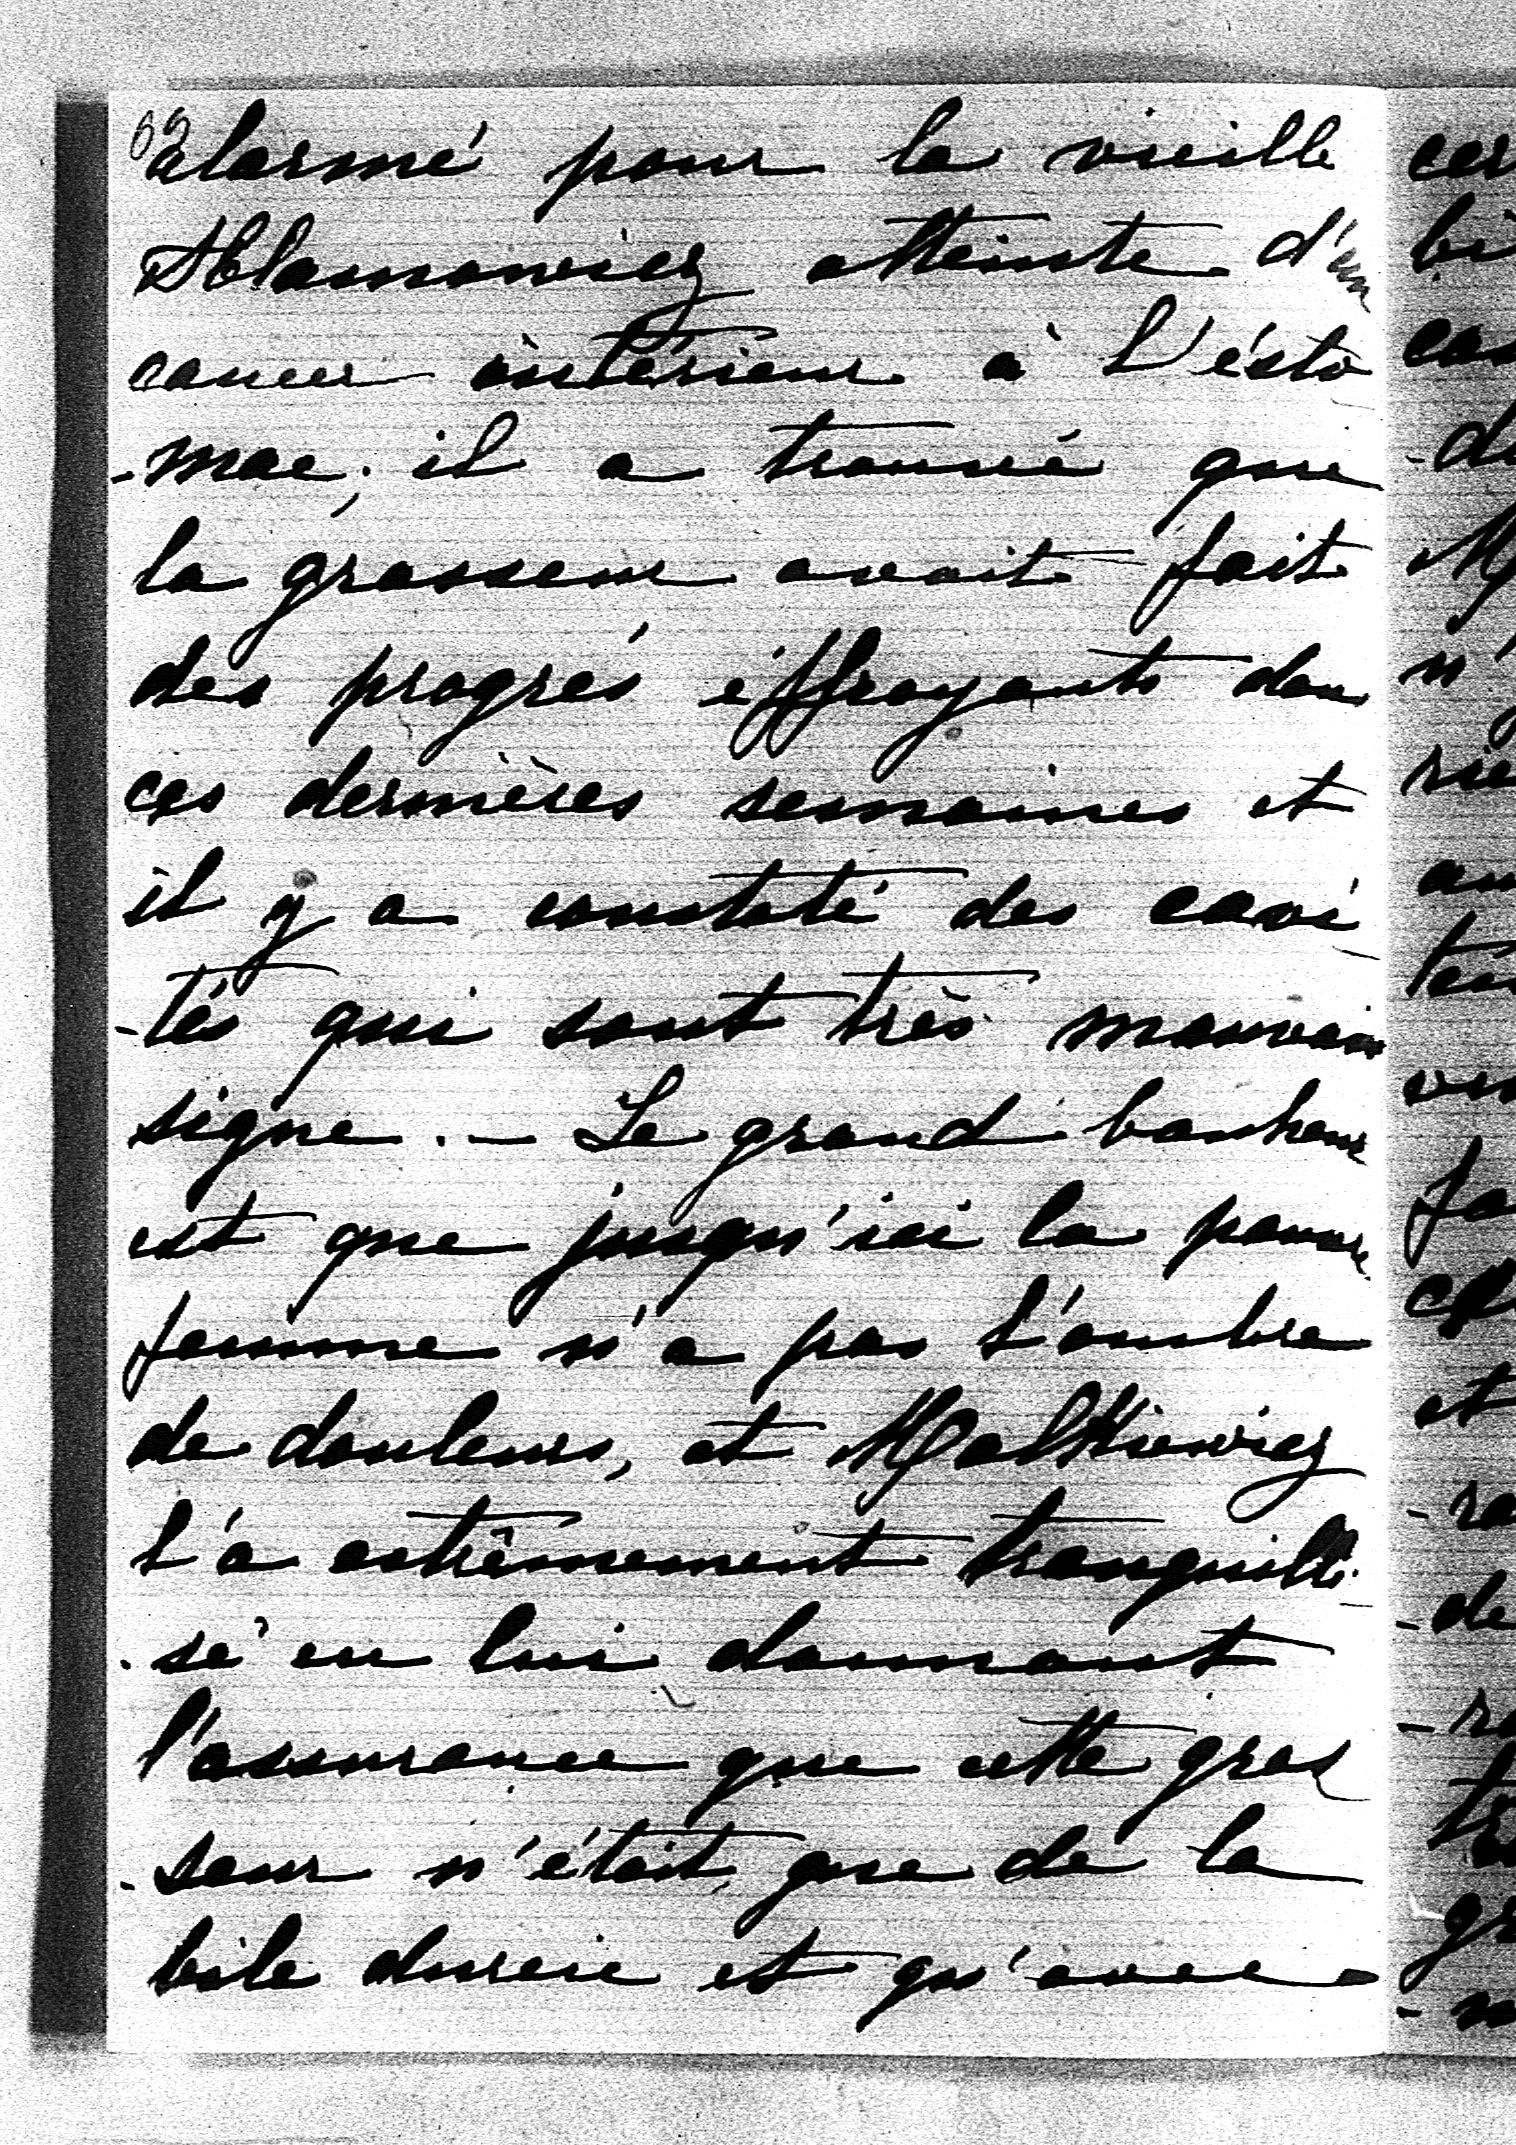 alarmé pour la vieille
atteinte d'un
cancer intérieur à l'ésto
-mac; il a trouvé que
la grosseur avait fait
des progrés éffrayants dans
ces dernières semaines et
il y a constaté des cavi
-tés qui sont très mauvais
signe. — Le grand bonheur
est que jusqu'ici la pauvre
femme n'a pas l'ombre
de douleurs, et Malkiewicz
l'a extrêmement tranquilli
-sé en lui donnant
l'assurance que cette gros
-seur n'était que de la
bile durcie et qu'avec